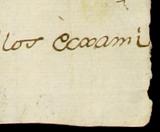 los exxami